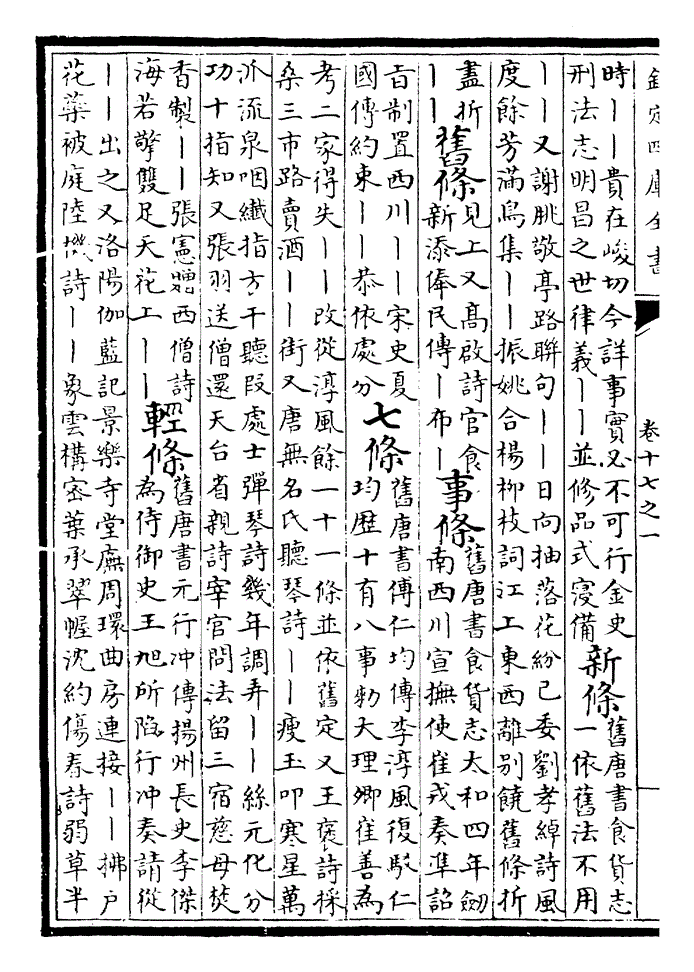 欽定四庫全書
卷十七之一
時丨丨貴在峻切今詳事實必不可行金史
刑法志明昌之世律義丨丨並修品式寖備
新條
舊唐書食貨志
一依舊法不用
丨丨又謝朓敬亭路聯句丨丨日向抽落花紛已委劉孝綽詩風
度餘芳滿鳥集丨丨振姚合楊柳枝詞江上東西離別饒舊條折
盡折
丨丨
舊條
見上又高啟詩官食
新添俸民傳丨布丨
事條
舊唐書食貨志太和四年劒
南西川宣撫使崔戎奏準詔
旨制置西川丨丨宋史夏
國傳約束丨丨恭依處分
七條
舊唐書傅仁均傳李淳風復駮仁
均歷十有八事勅大理卿崔善為
考二家得失丨丨改從淳風餘一十一條並依舊定又王褒詩採
桑三市路賣酒丨丨街又唐無名氏聽琴詩丨丨瘦玉叩寒星萬
派流泉咽纖指方干聽段處士彈琴詩幾年調弄丨丨絲元化分
功十指知又張羽送僧還天台省親詩宰官問法留三宿慈母焚
香製丨丨張憲贈西僧詩
海若擎雙足天花上丨丨
輕條
舊唐書元行冲傳揚州長史李傑
為侍御史王旭所陷行冲奏請從
丨丨出之又洛陽伽藍記景樂寺堂廡周環曲房連接丨丨拂户
花蘂被庭陸機詩丨丨象雲構密葉承翠幄沈約傷春詩弱草半